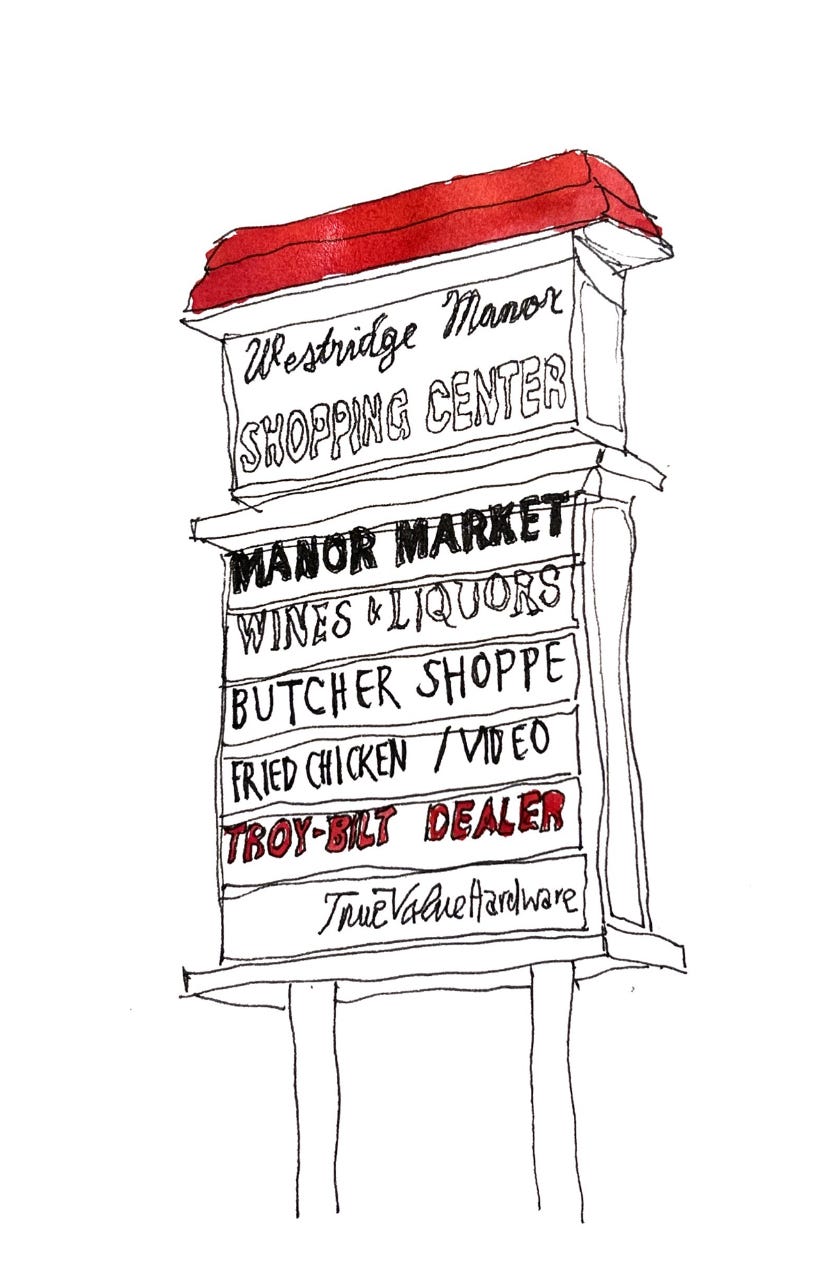 Westridge Manor
SHOPPING CENTER
MANOR MARKET
WINES & LIQUORS
BUTCHER SHOPPE
FRIED CHICKEN / VIDEO
TROY-BILT DEALER
True Value Hardware